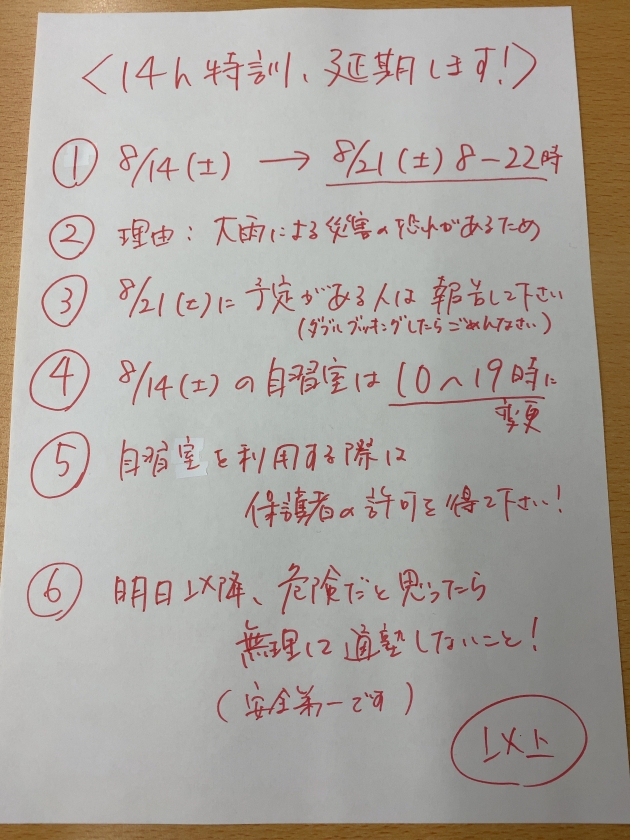 <14h特訓、延期します!>
① 8/14(土) → 8/21(土) 8-22時
② 理由: 大雨による災害の恐れがあるため
③ 8/21(土)に予定がある人は報告して下さい
(ダブルブッキングしたらごめんなさい)
④ 8/14(土)の自習室は10~19時に
変更
⑤ 自習室を利用する際は
保護者の許可を得て下さい!
⑥ 明日以降、危険だと思ったら
無理して通塾しないこと!
(安全第一です)
以上